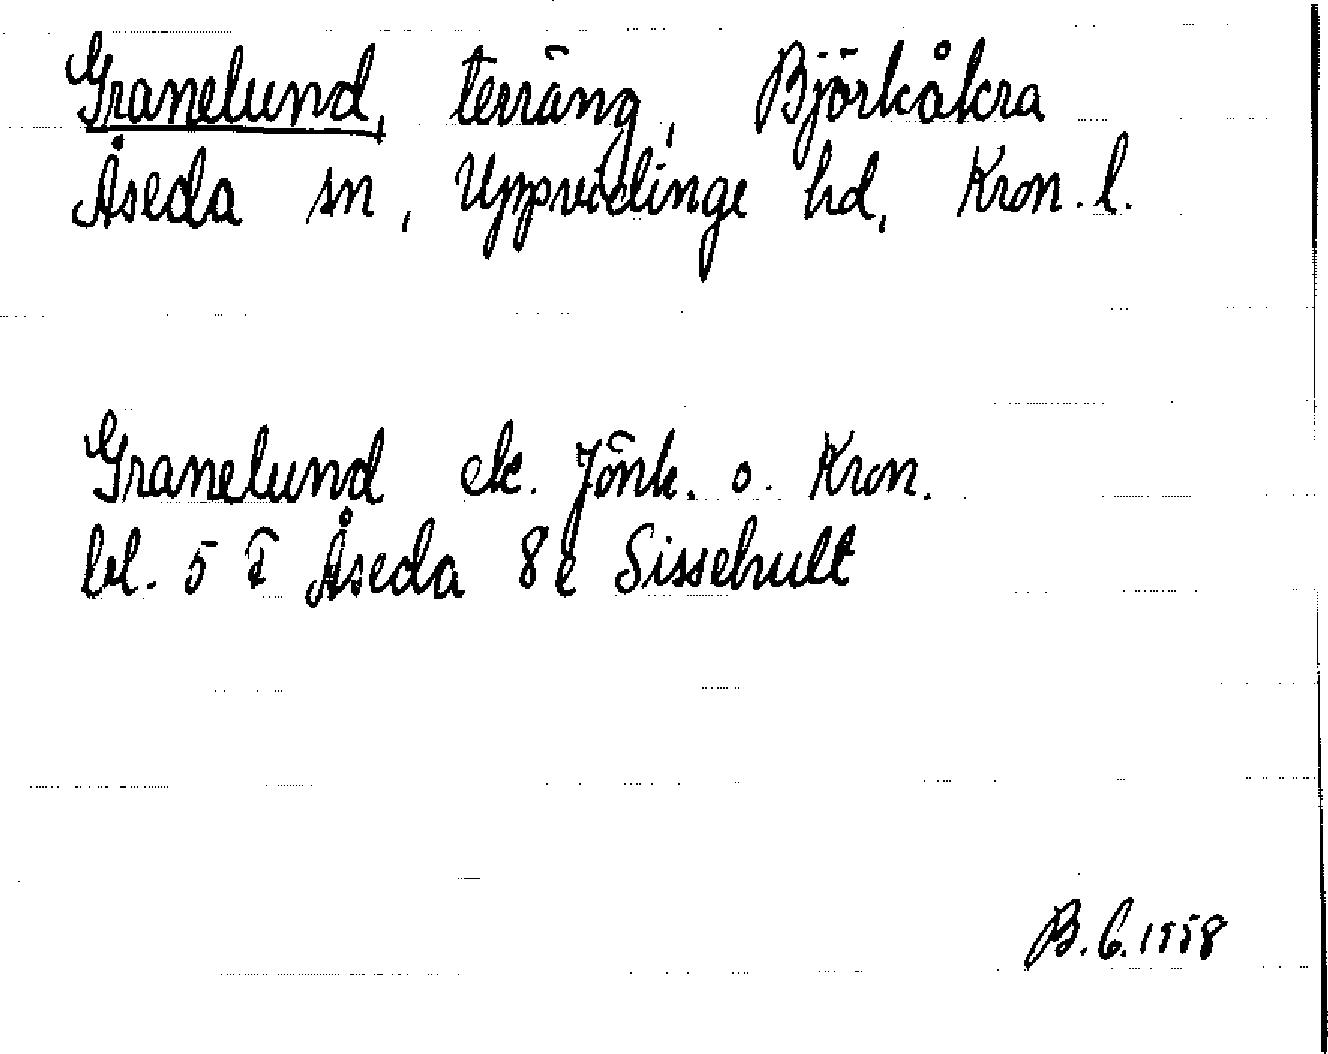 Granelund, terräng, Björkåkra
Åseda sn, Uppvidinge hd, Kron. l.
Granelund ek. Jönk. o. Kron.
bl. 5 F Åseda 8e Sissehult
B. G. 1958